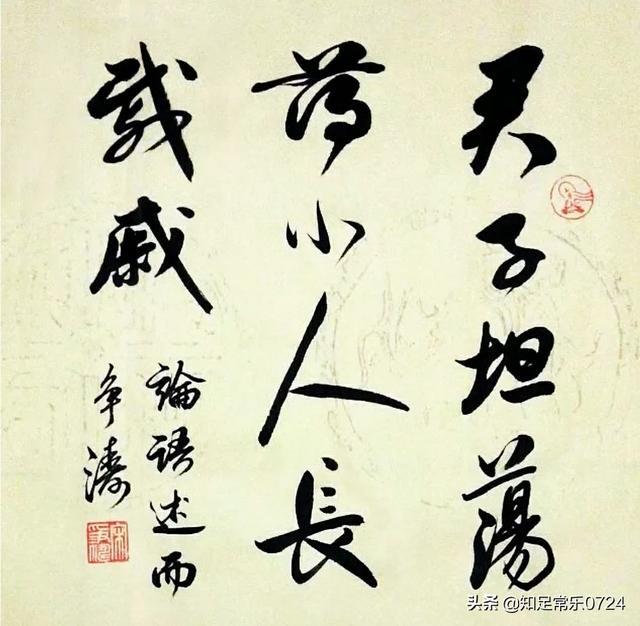 君子坦蕩
蕩小人長
戚戚
論語述而
争濤
头条 @知足常乐0724